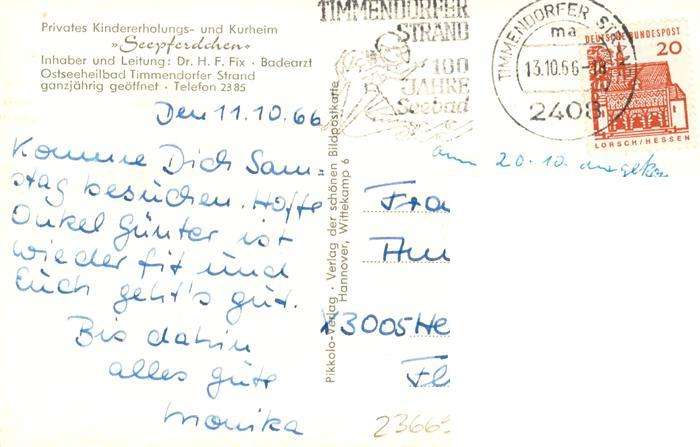 Privates Kindererholungs- und Kurheim
»Seepferdchen«
Inhaber und Leitung: Dr. H. F. Fix · Badearzt
Ostseeheilbad Timmendorfer Strand
ganzjährig geöffnet · Telefon 2385
Den 11.10.66
Komme Dich Sam-
stag besuchen. Hoffe
Onkel Günter ist
wieder fit und
Euch geht's gut.
Bis dahin
alles gute
Monika
Pikkolo-Verlag · Verlag der schönen Bildpostkarte
Hannover, Wittekamp 6
TIMMENDORFER
STRAND
100
JAHRE
Seebad
TIMMENDORFER STR
ma
13.10.66-18
2408
DEUTSCHE BUNDESPOST
20
LORSCH/HESSEN
am 20.10. angek
Fra
X3005 He
Fl
23665